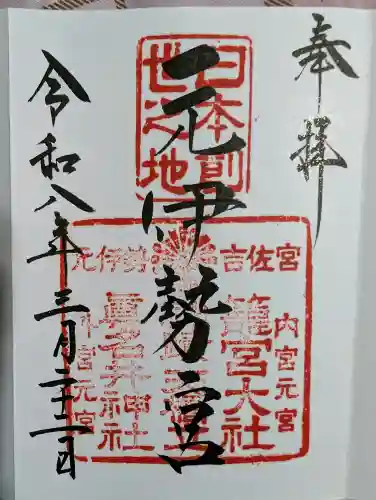 奉拝
元伊勢宮
令和八年三月二十二日
日本創
世之地
元伊勢 吉佐宮
内宮元宮
籠宮大社
眞名井神社
外宮元宮